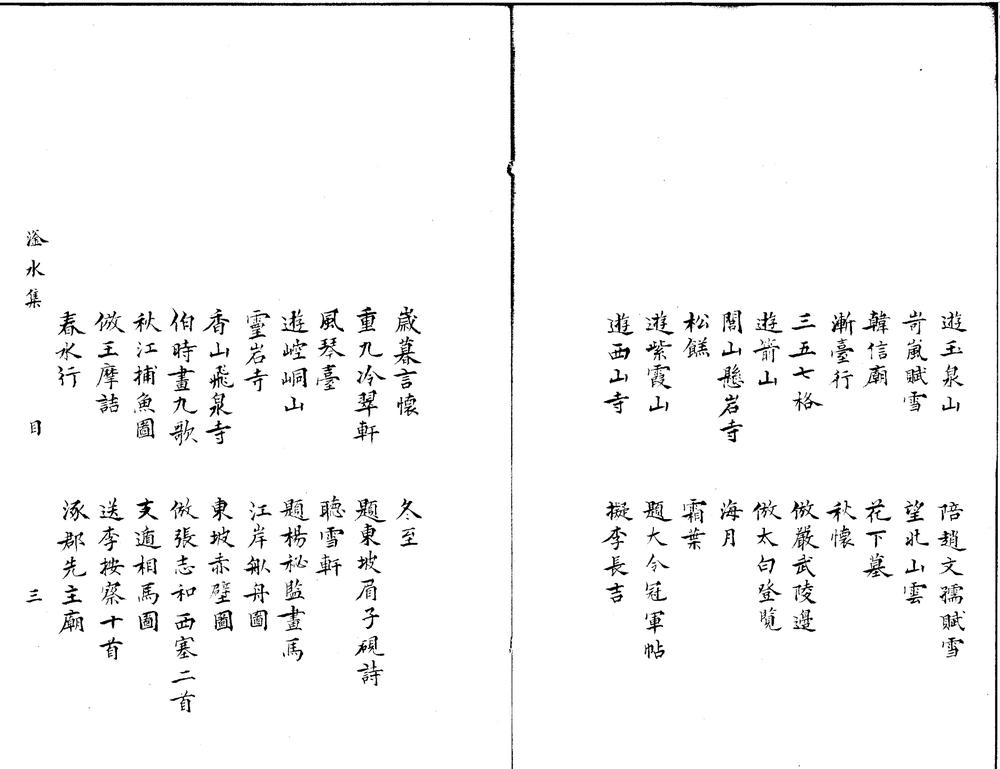 遊玉泉山　陪趙文孺賦雪
岢嵐賦雪　望北山雲
韓信廟　花下墓
漸臺行　秋懷
三五七格　倣嚴武陵邊
遊箭山　倣太白登覽
閭山懸岩寺　海月
松糕　霜葉
遊紫霞山　題大令冠軍帖
遊西山寺　擬李長吉
歲暮言懷　冬至
重九冷翠軒　題東坡眉子硯詩
風琴臺　聽雪軒
遊崆峒山　題楊祕監畫馬
靈岩寺　江岸艤舟圖
香山飛泉寺　東坡赤壁圖
伯時畫九歌　倣張志和西塞二首
秋江捕魚圖　支遁相馬圖
倣王摩詰　送李按察十首
春水行　涿郡先主廟
滏水集　目　三